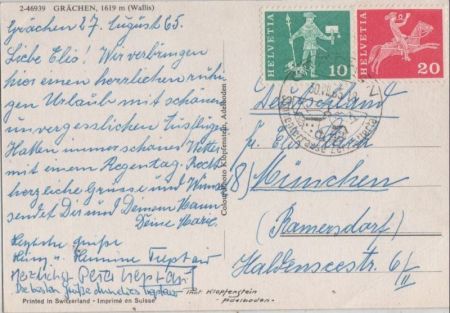 2-46939 GRÄCHEN, 1619 m (Wallis)
Grächen 27. August 65.
Liebe Elis! Wir verbringen
hier einen herrlichen ruhi-
gen Urlaub mit schönen
unvergesslichen Ausflügen
Hatten immer schönes Wetter
mit einem Regentag. Recht
herzliche Grüsse und Küsse
sendet Dir und Deinem Mann
Deine Marie.
Herzliche Grüße
Hermine Treptau
Herzlichst Peter Treptau
Die besten Grüße Treptau
Printed in Switzerland - Imprimé en Suisse
Klopfenstein, Adelboden
HELVETIA
10
HELVETIA
20
Deutschland
Fr.
8) München
(Ramersdorf)
Haldenseestr. 6/III
Klopfenstein
Adelboden